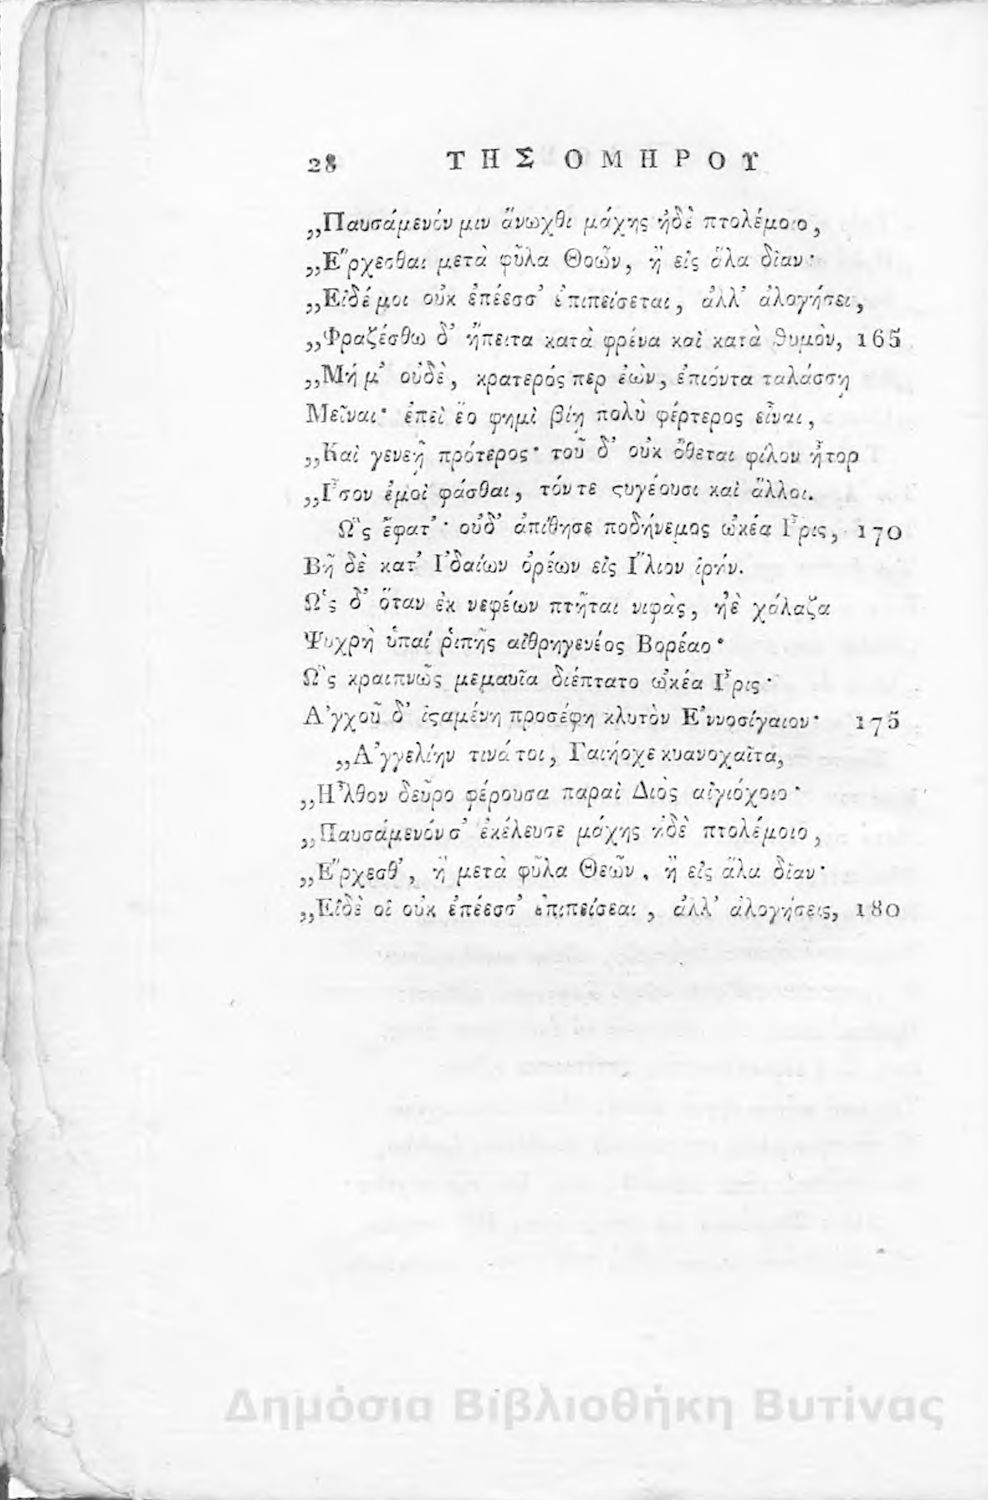 28 ΤΗΣ ΟΜΗΡΟΥ
„Παυσάμενόν μιν ἄνωχθι μάχης ἠδὲ πτολέμοιο,
„Ἔρχεσθαι μετὰ φῦλα Θοῶν, ἢ εἰς ἅλα δῖαν·
„Εἰδέ μοι οὐκ ἐπέεσσ᾽ ἐπιπείσεται, ἀλλ᾽ ἀλογήσει,
„Φραζέσθω δ᾽ ἤπειτα κατὰ φρένα καὶ κατὰ θυμὸν, 165
„Μή μ᾽ οὐδὲ, κρατερός περ ἐὼν, ἐπιόντα ταλάσσῃ
Μεῖναι· ἐπεὶ ἕο φημὶ βίῃ πολὺ φέρτερος εἶναι,
„Καὶ γενεῇ πρότερος· τοῦ δ᾽ οὐκ ὄθεται φίλον ἦτορ
„Ἶσον ἐμοὶ φάσθαι, τόν τε ϛυγέουσι καὶ ἄλλοι.
Ὣς ἔφατ᾽· οὐδ᾽ ἀπίθησε ποδήνεμος ὠκέα Ἶρις, 170
Βῆ δὲ κατ᾽ Ἰδαίων ὀρέων εἰς Ἴλιον ἱρήν.
Ὡς δ᾽ ὅταν ἐκ νεφέων πτῆται νιφὰς, ἠὲ χάλαζα
Ψυχρὴ ὑπαί ῥιπῆς αἰθρηγενέος Βορέαο·
Ὣς κραιπνῶς μεμαυῖα διέπτατο ὠκέα Ἶρις·
Ἀγχοῦ δ᾽ ἱϛαμένη προσέφη κλυτὸν Ἐννοσίγαιον· 175
„Ἀγγελίην τινά τοι, Γαιήοχε κυανοχαῖτα,
„Ἦλθον δεῦρο φέρουσα παραὶ Διὸς αἰγιόχοιο·
„Παυσάμενόν σ᾽ ἐκέλευσε μάχης ἠδὲ πτολέμοιο,
„Ἔρχεσθ᾽, ἢ μετὰ φῦλα Θεῶν, ἢ εἰς ἅλα δῖαν·
„Εἰδὲ οἱ οὐκ ἐπέεσσ᾽ ἐπιπείσεαι, ἀλλ᾽ ἀλογήσεις, 180
Δημόσια Βιβλιοθήκη Βυτίνας